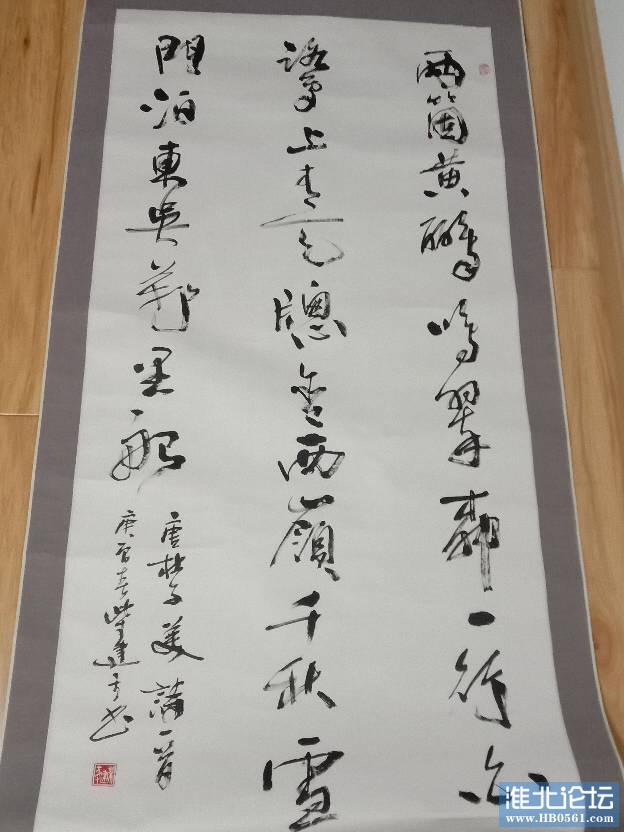 兩箇黃鸝鳴翠柳一行白
鷺上青天牕含西嶺千秋雪
門泊東吳萬里船
唐杜子美詩一首
庚春柴建方书
淮北论坛
www.HB0561.com